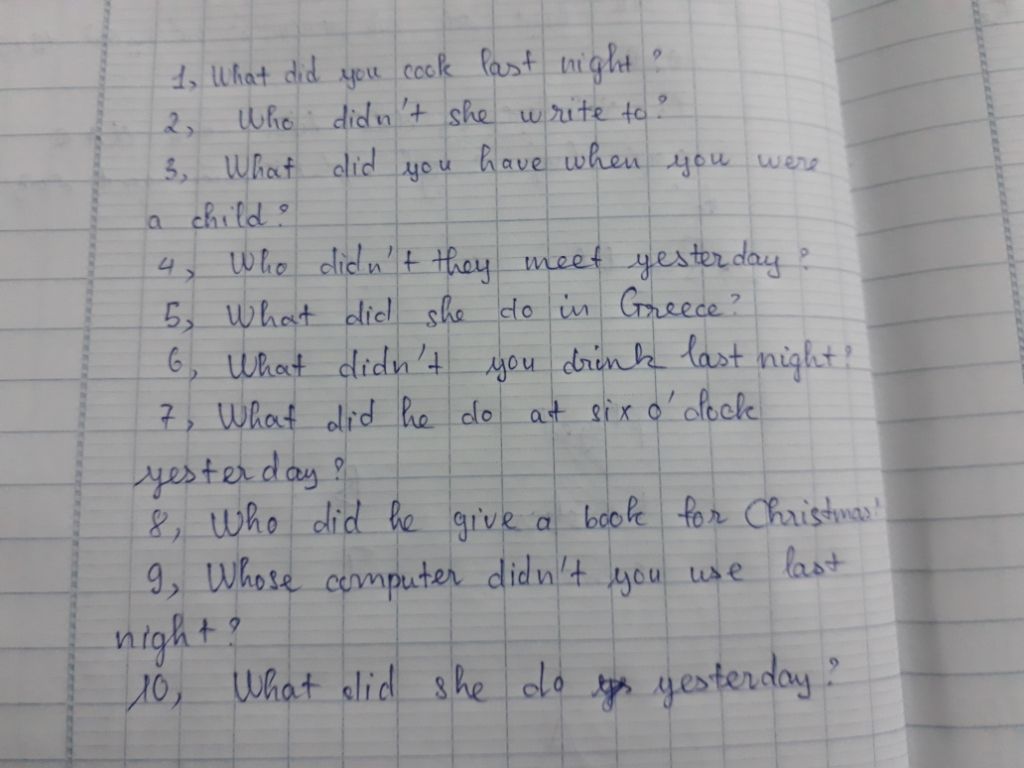 1, What did you cook last night?
2, Who didn't she write to?
3, What did you have when you were
a child?
4, Who didn't they meet yesterday?
5, What did she do in Greece?
6, What didn't you drink last night?
7, What did he do at six o'clock
yesterday?
8, Who did he give a book for Christmas?
9, Whose computer didn't you use last
night?
10, What did she do yesterday?